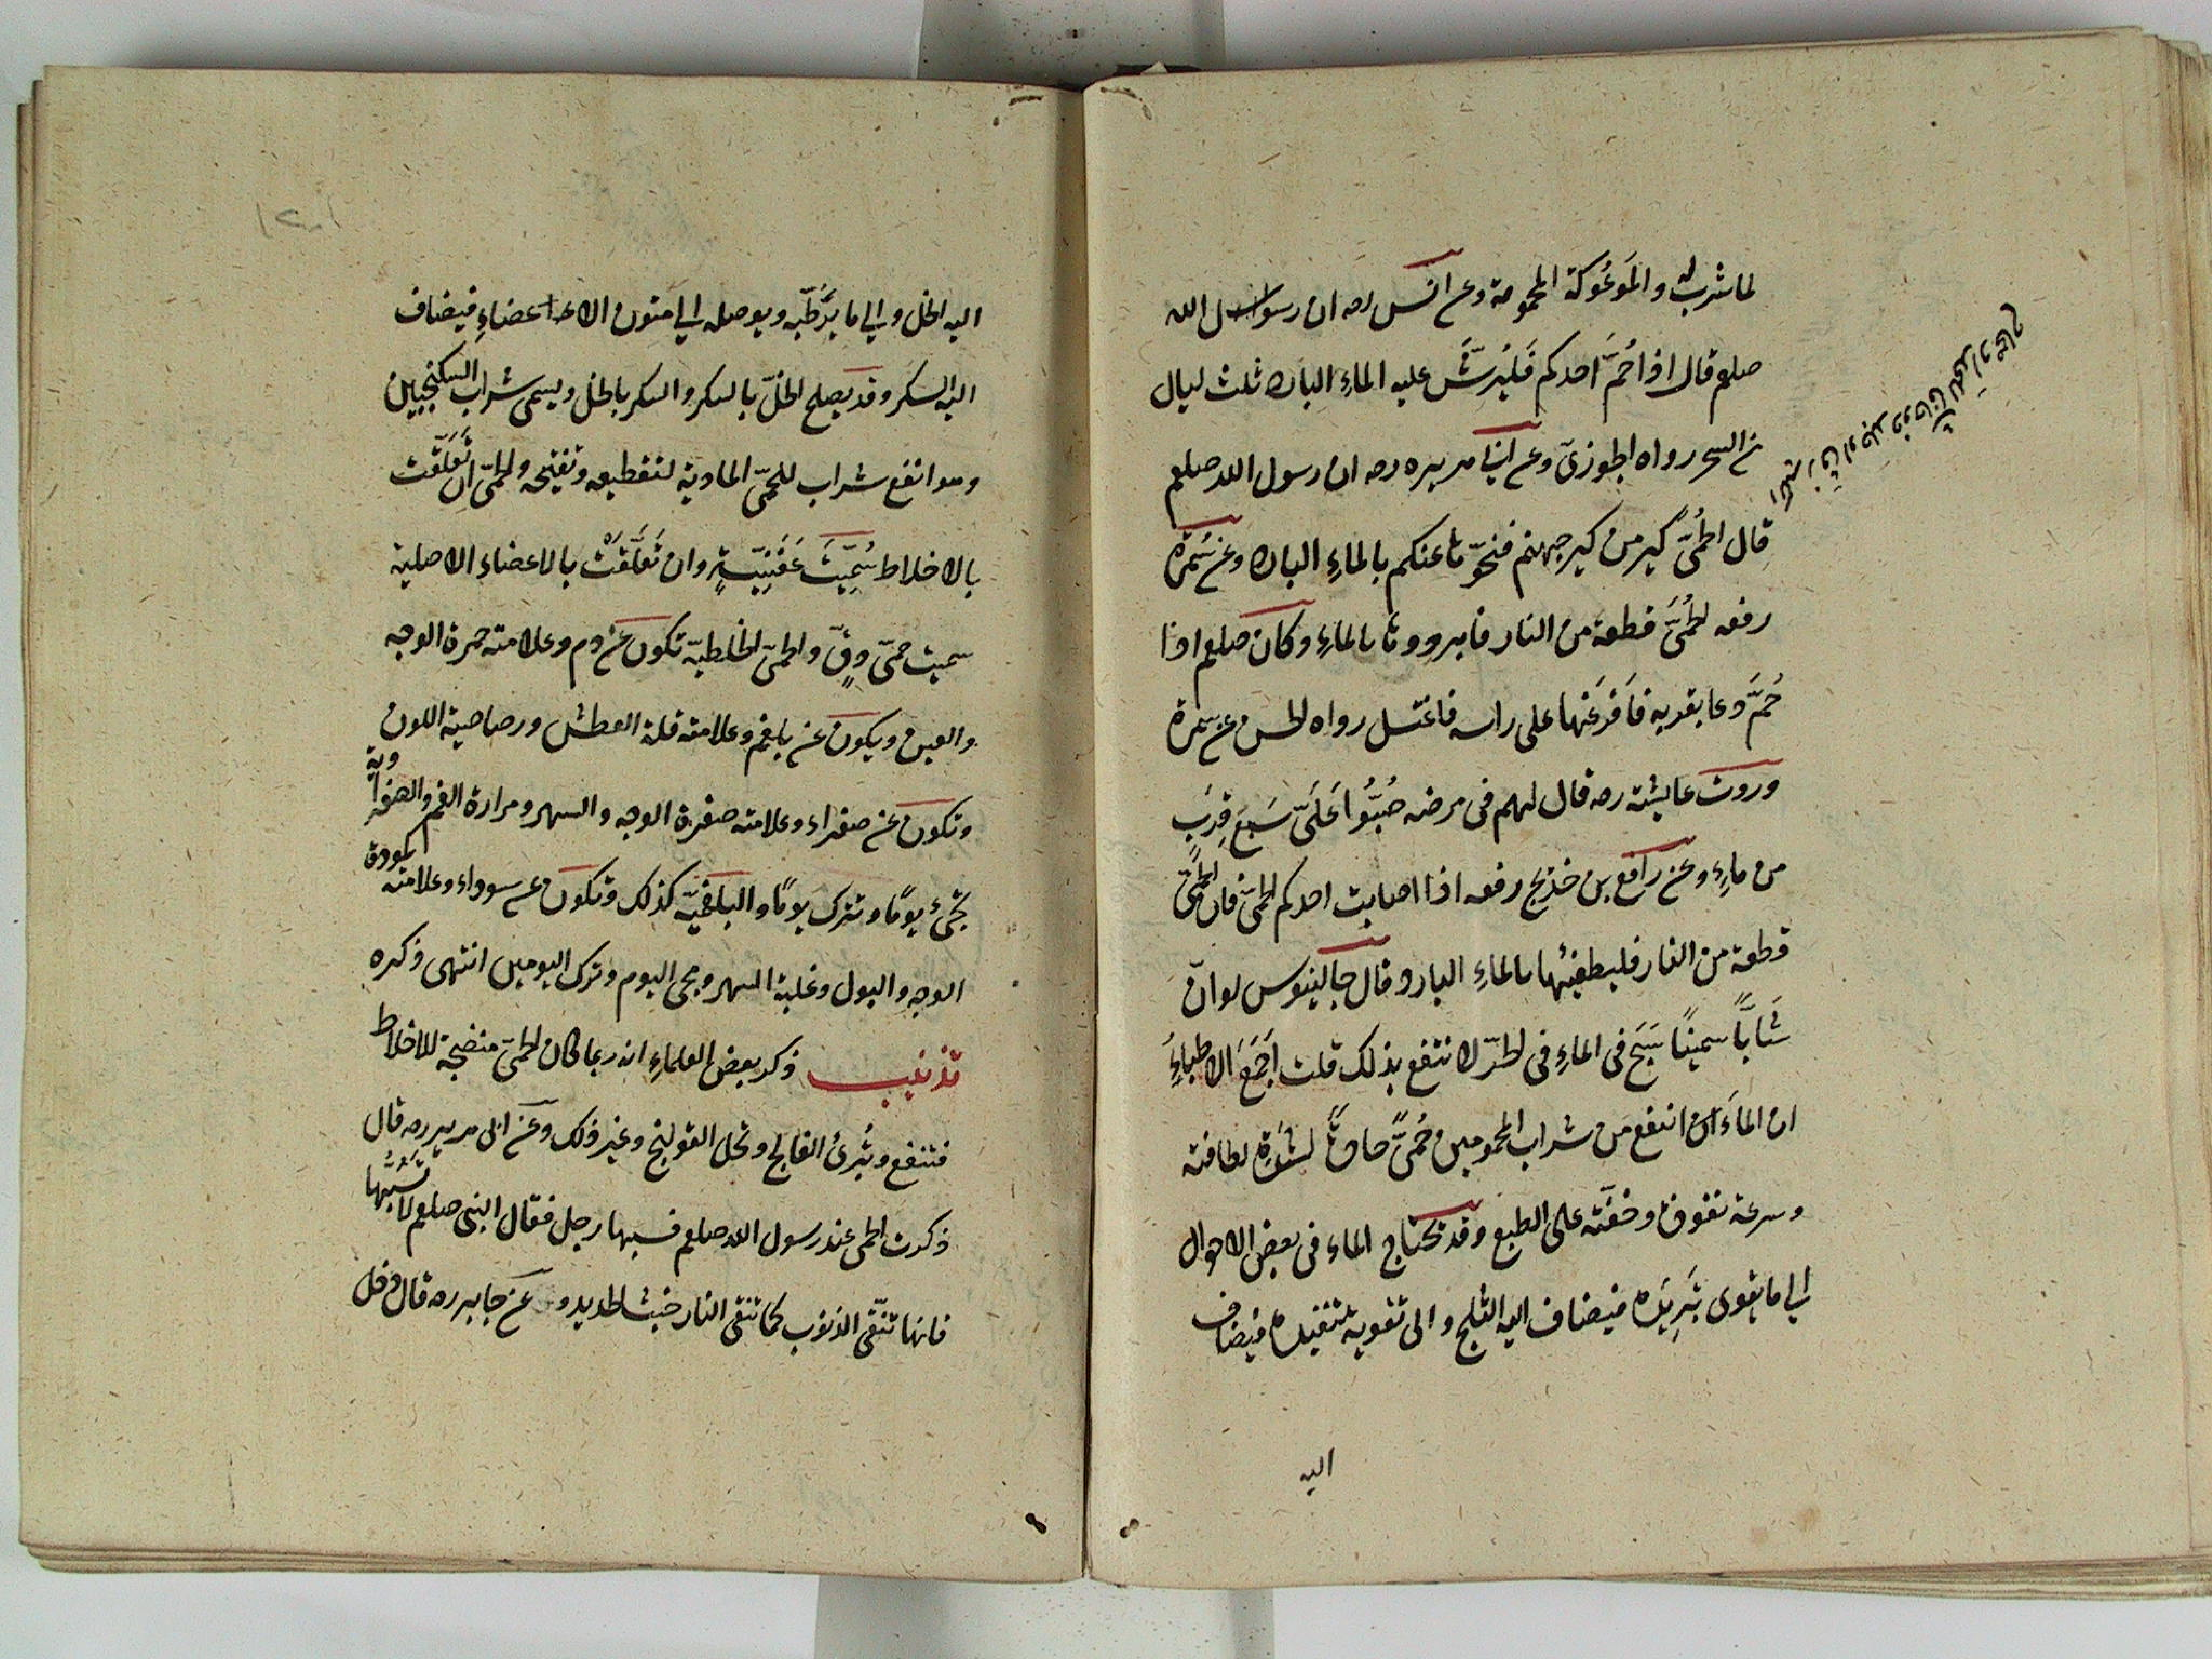 لما شرب له والمَوعُوكة المحمومة وعن انس رصه ان رسول الله
صلعم قال اذا حُمَّ احدكم فَليُرشَّ عليه الماءِ البارد ثلث ليال
من السحر رواه الجوزىّ وعن ابى هريره رصه ان رسول الله صلعم
قال الحُمىّ كير من كير جهنم فنحّوها عنكم بالماءِ البارد وعن سَمُرة
رفعه الحُمىَّ قطعة من النار فابردوها بالماءِ وكان صلعم اذا
حُمَّ دعا بقربه فاَفرَغَها على راسه فاغتسل رواه الحسن عن سمرة
وروت عايشة رصه قال لهم فى مرضه صُبُّوا عَلَىَّ سَبعَ قِرَبٍ
من ماءٍ وعن رافع بن خديج رفعه اذا اصابت احدكم الحمّىَ فان الحُمّىَ
قطعة من النار فليطفئها بالماءِ البارد وقال جالينوس لو انّ
شَابًّا سمينًا سَبَح فى الماءِ فى الحرّ لانتفع بذلك قلت اَجمَعَ الاطباءُ
ان الماءَ انفع من شراب المحمومين حُمىًّ حادّةً لشدّةِ لطافته
وسرعة نفوذه وخفّته على الطبع وقد يحتاج الماء فى بعض الاحوال
الى ما يقوى تَبرِيَده فيضاف اليه الثلج والى تقوية تنفيذه فيضاف
اليه
اليه الخل والى ما يُرَطّبه ويوصله الى متون الاعضاءِ فيضاف
اليه السكر وقد يصلح الخلّ بالسكر والسكر بالخل ويسمى شراب السكنجبين
وهو انفع شراب للحمىّ المادية لتقطيعه وتفتيحه والحمىّ ان تَعَلَّقَت
بالاخلاط سُمِّيَتَ عَفَنِيّةٍ وان تَعَلَّقَتْ بالاعضاءِ الاصلية
سميت حمىّ دِقّ والحمىّ الخلطيّة تكون عن دم وعلامته حمرة الوجه
والعين ويكون عن بلغم وعلامته قلة العطش ورصاصية اللون
وتكون عن صفراء وعلامته صفرة الوجه والسهر ومرارة الفم والصفراوية
تجىُ يومًا وتترك يومًا والبلغميّة كذلك وتكون عن سوداء وعلامته كمودة
الوجه والبول وغلبة السهر ومجى اليوم وترك اليومين انتهى ذكره
تذنيب ذكر بعض العلماءِ انه ربما كان الحمىّ منضجة للاخلاط
فتنفع وتُبرئُ الفالج وتحل القولنج وغير ذلك وعن ابى هريره رصه قال
ذكرت الحمى عند رسول الله صلعم فسبها رجل فقال النبى صلعم لا تَسُبّها
فانها تنّقى الذنوب كما تنقى النار خبث الحديد وعن جابر رصه قال دخل